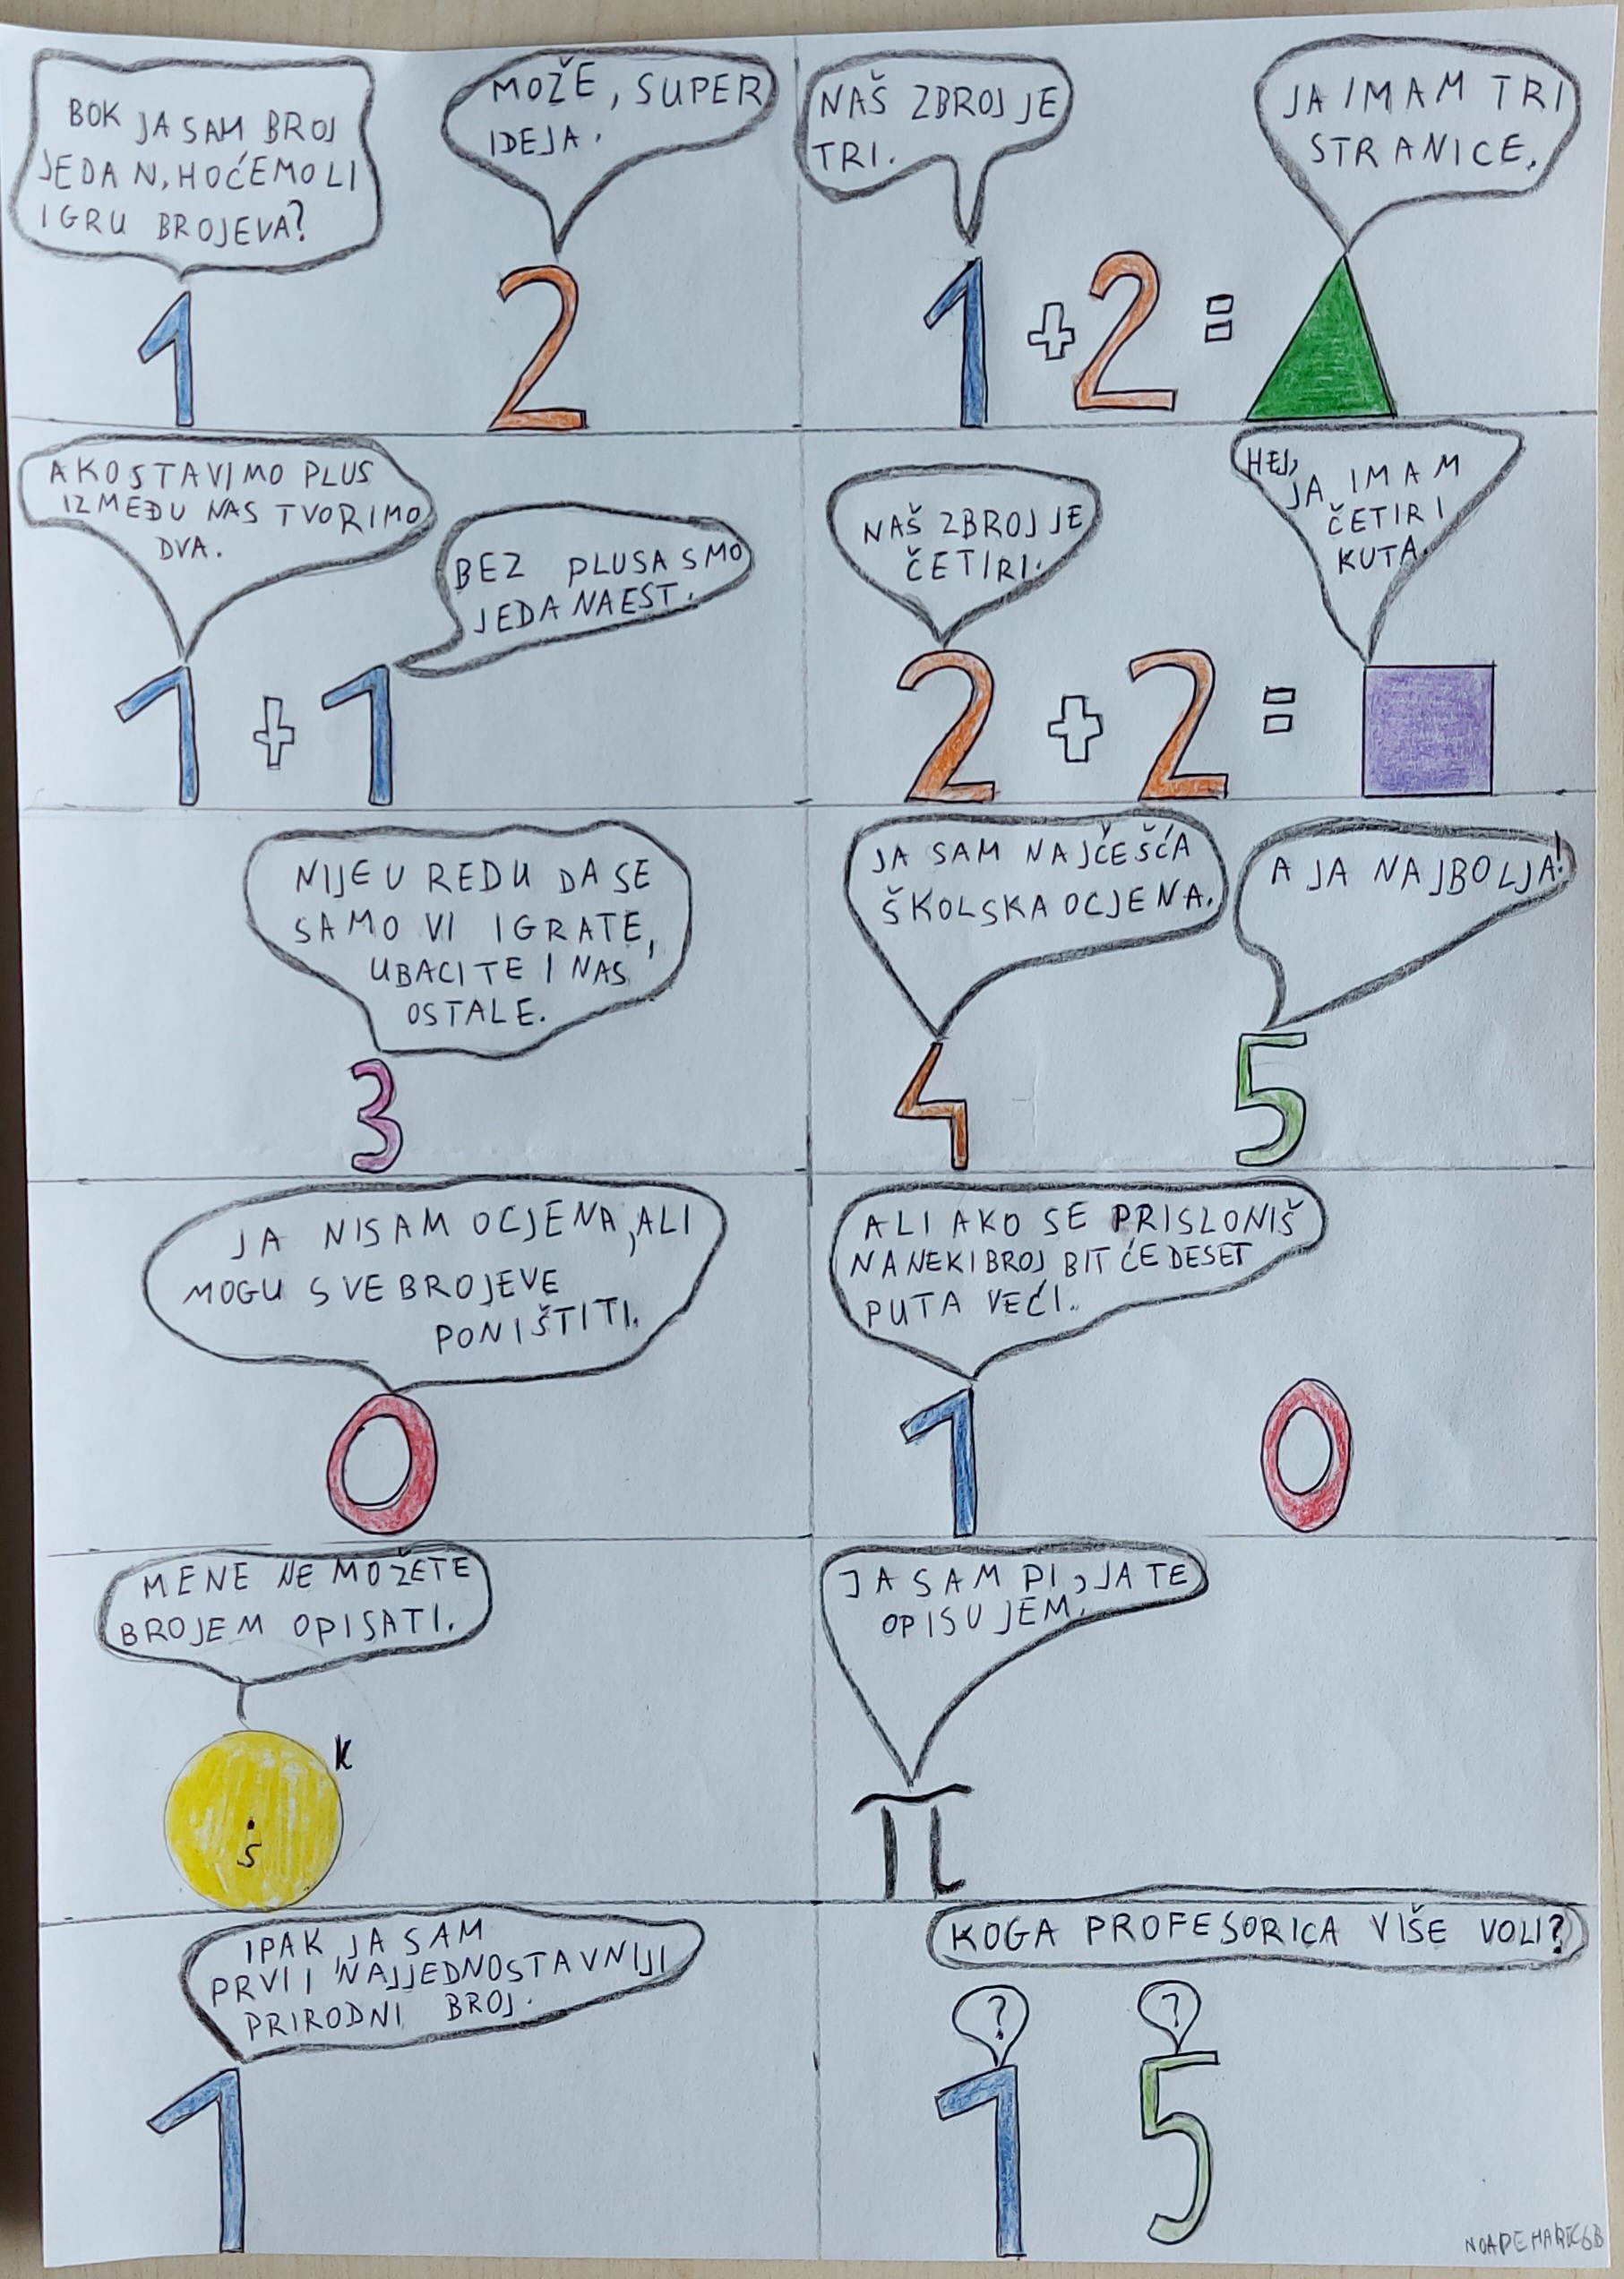 BOK JA SAM BROJ
JEDAN, HOĆEMO LI
IGRU BROJEVA?
MOŽE, SUPER
IDEJA.
1
2
NAŠ ZBROJ JE
TRI.
JA IMAM TRI
STRANICE.
1 + 2 =
AKO STAVIMO PLUS
IZMEĐU NAS TVORIMO
DVA.
BEZ PLUSA SMO
JEDANAEST.
1 + 1
NAŠ ZBROJ JE
ČETIRI.
HEJ,
JA IMAM
ČETIRI
KUTA.
2 + 2 =
NIJE U REDU DA SE
SAMO VI IGRATE,
UBACITE I NAS
OSTALE.
3
JA SAM NAJČEŠĆA
ŠKOLSKA OCJENA.
A JA NAJBOLJA!
4
5
JA NISAM OCJENA, ALI
MOGU SVE BROJEVE
PONIŠTITI.
0
ALI AKO SE PRISLONIŠ
NA NEKI BROJ BIT ĆE DESET
PUTA VEĆI.
1
0
MENE NE MOŽETE
BROJEM OPISATI.
K
S
JA SAM PI, JA TE
OPISUJEM.
π
IPAK, JA SAM
PRVI I NAJJEDNOSTAVNIJI
PRIRODNI BROJ.
1
KOGA PROFESORICA VIŠE VOLI?
?
?
1
5